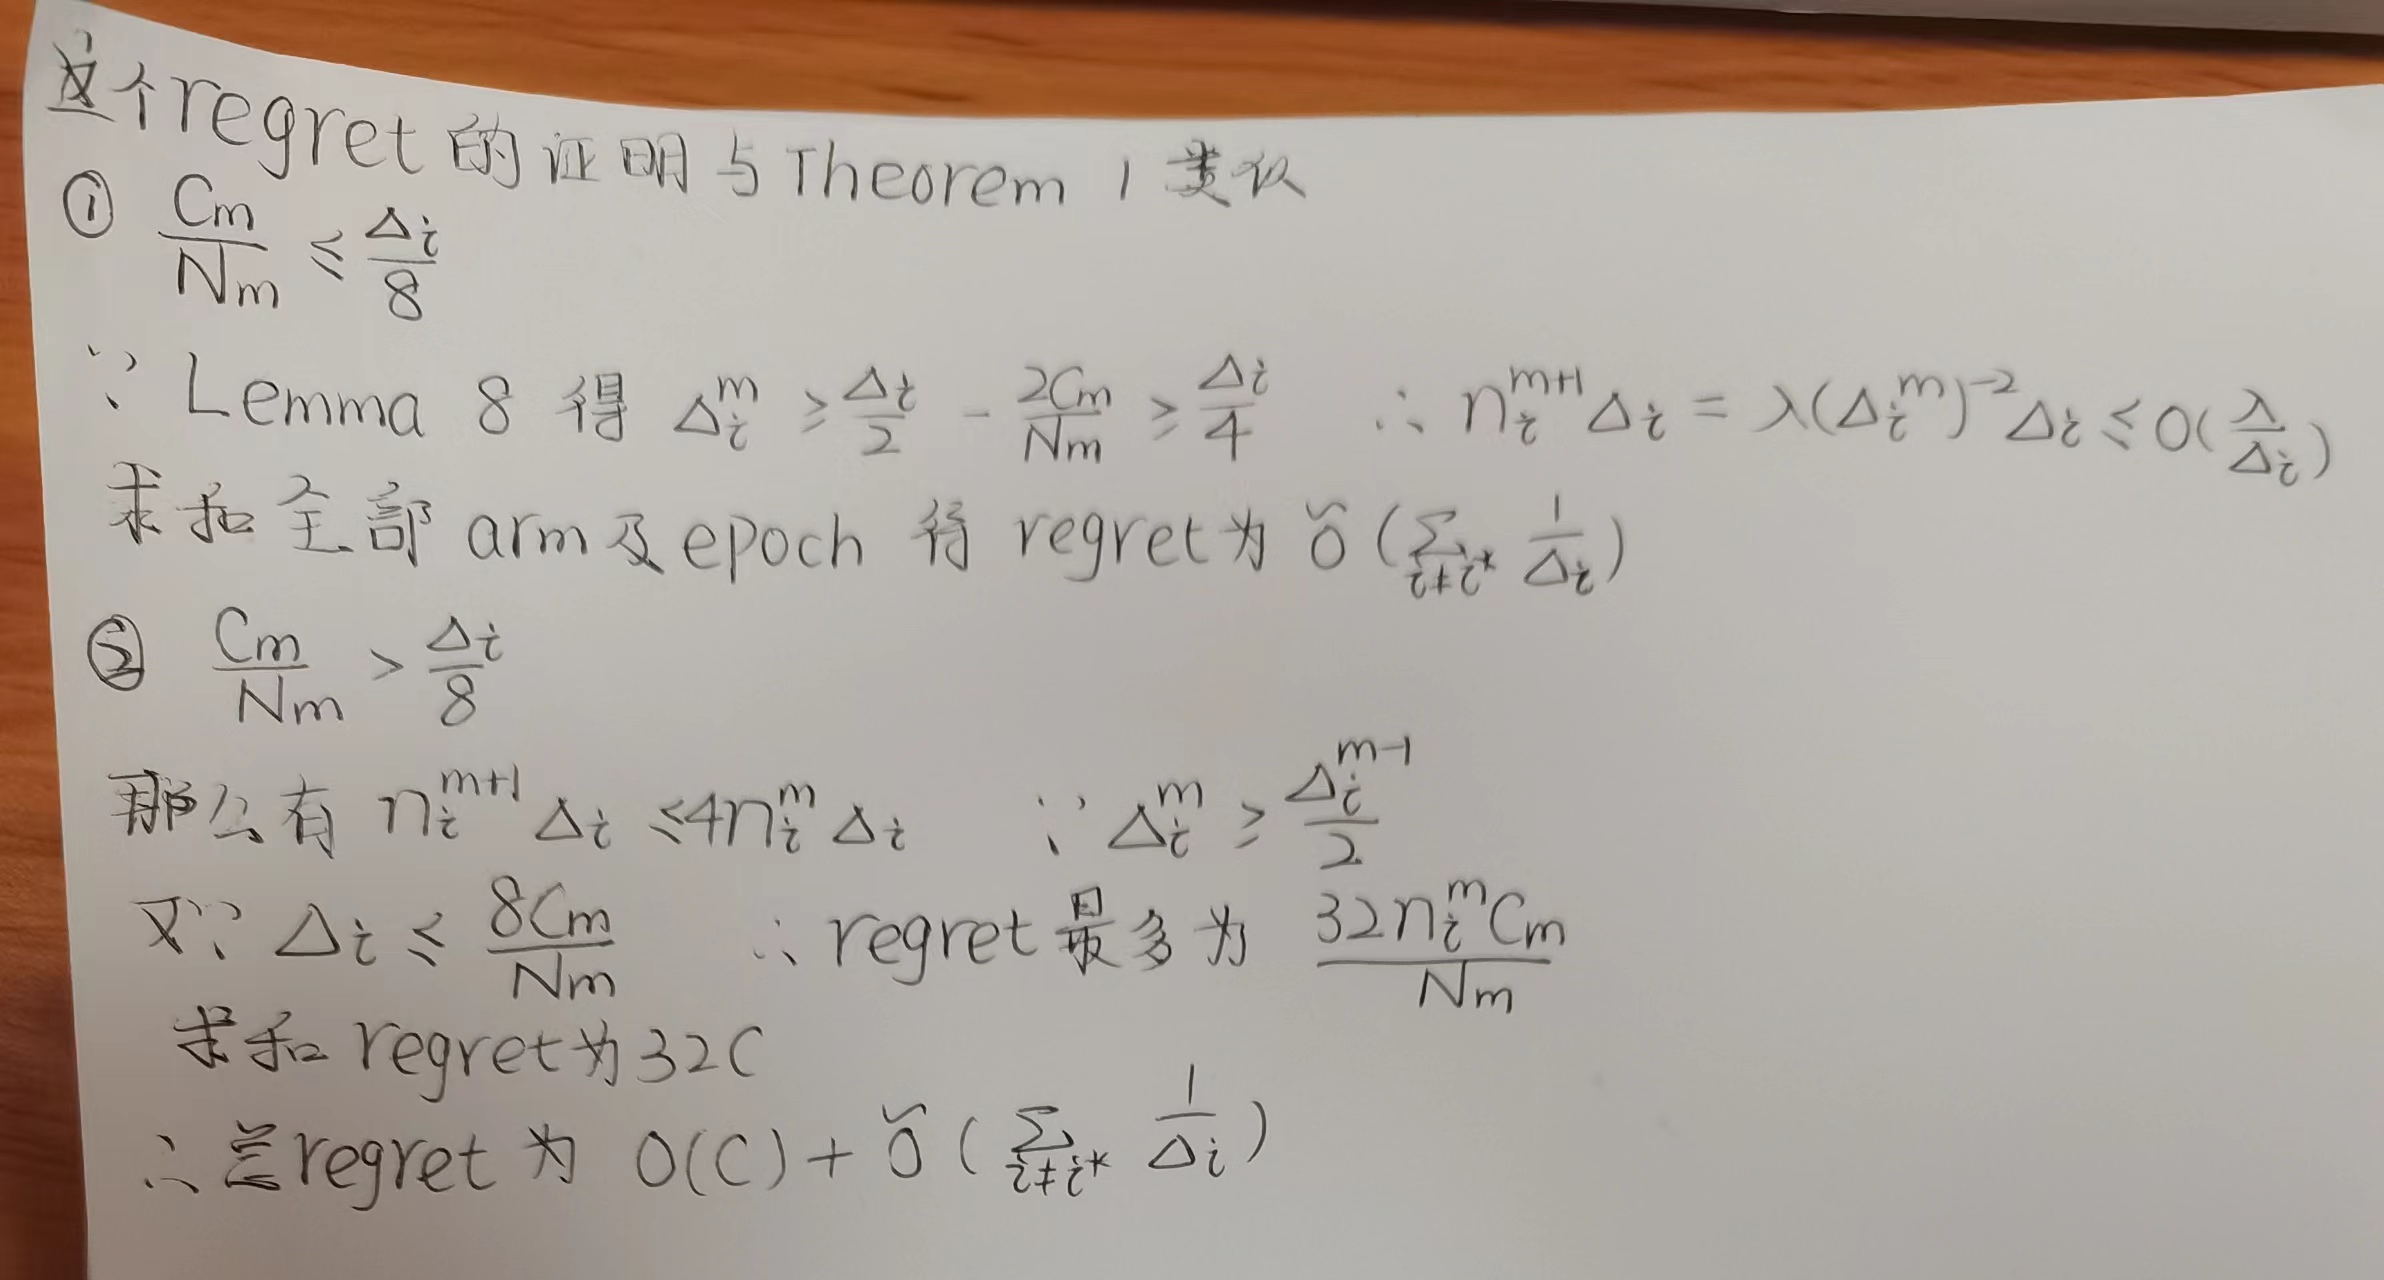 这个regret的证明与Theorem 1类似
① Cm/Nm ≤ Δi/8
∵ Lemma 8 得 Δi^m ≥ Δi/2 - 2Cm/Nm ≥ Δi/4 ∴ ni^(m+1) Δi = λ(Δi^m)^-2 Δi ≤ O(λ/Δi)
求和全部arm及epoch 得 regret为 Õ(∑i≠i* 1/Δi)
② Cm/Nm > Δi/8
那么有 ni^(m+1) Δi ≤ 4ni^m Δi ∵ Δi^m ≥ Δi^(m-1)/2
又∵ Δi ≤ 8Cm/Nm ∴ regret最多为 32ni^m Cm/Nm
求和regret为32C
∴ 总regret为 O(C) + Õ(∑i≠i* 1/Δi)